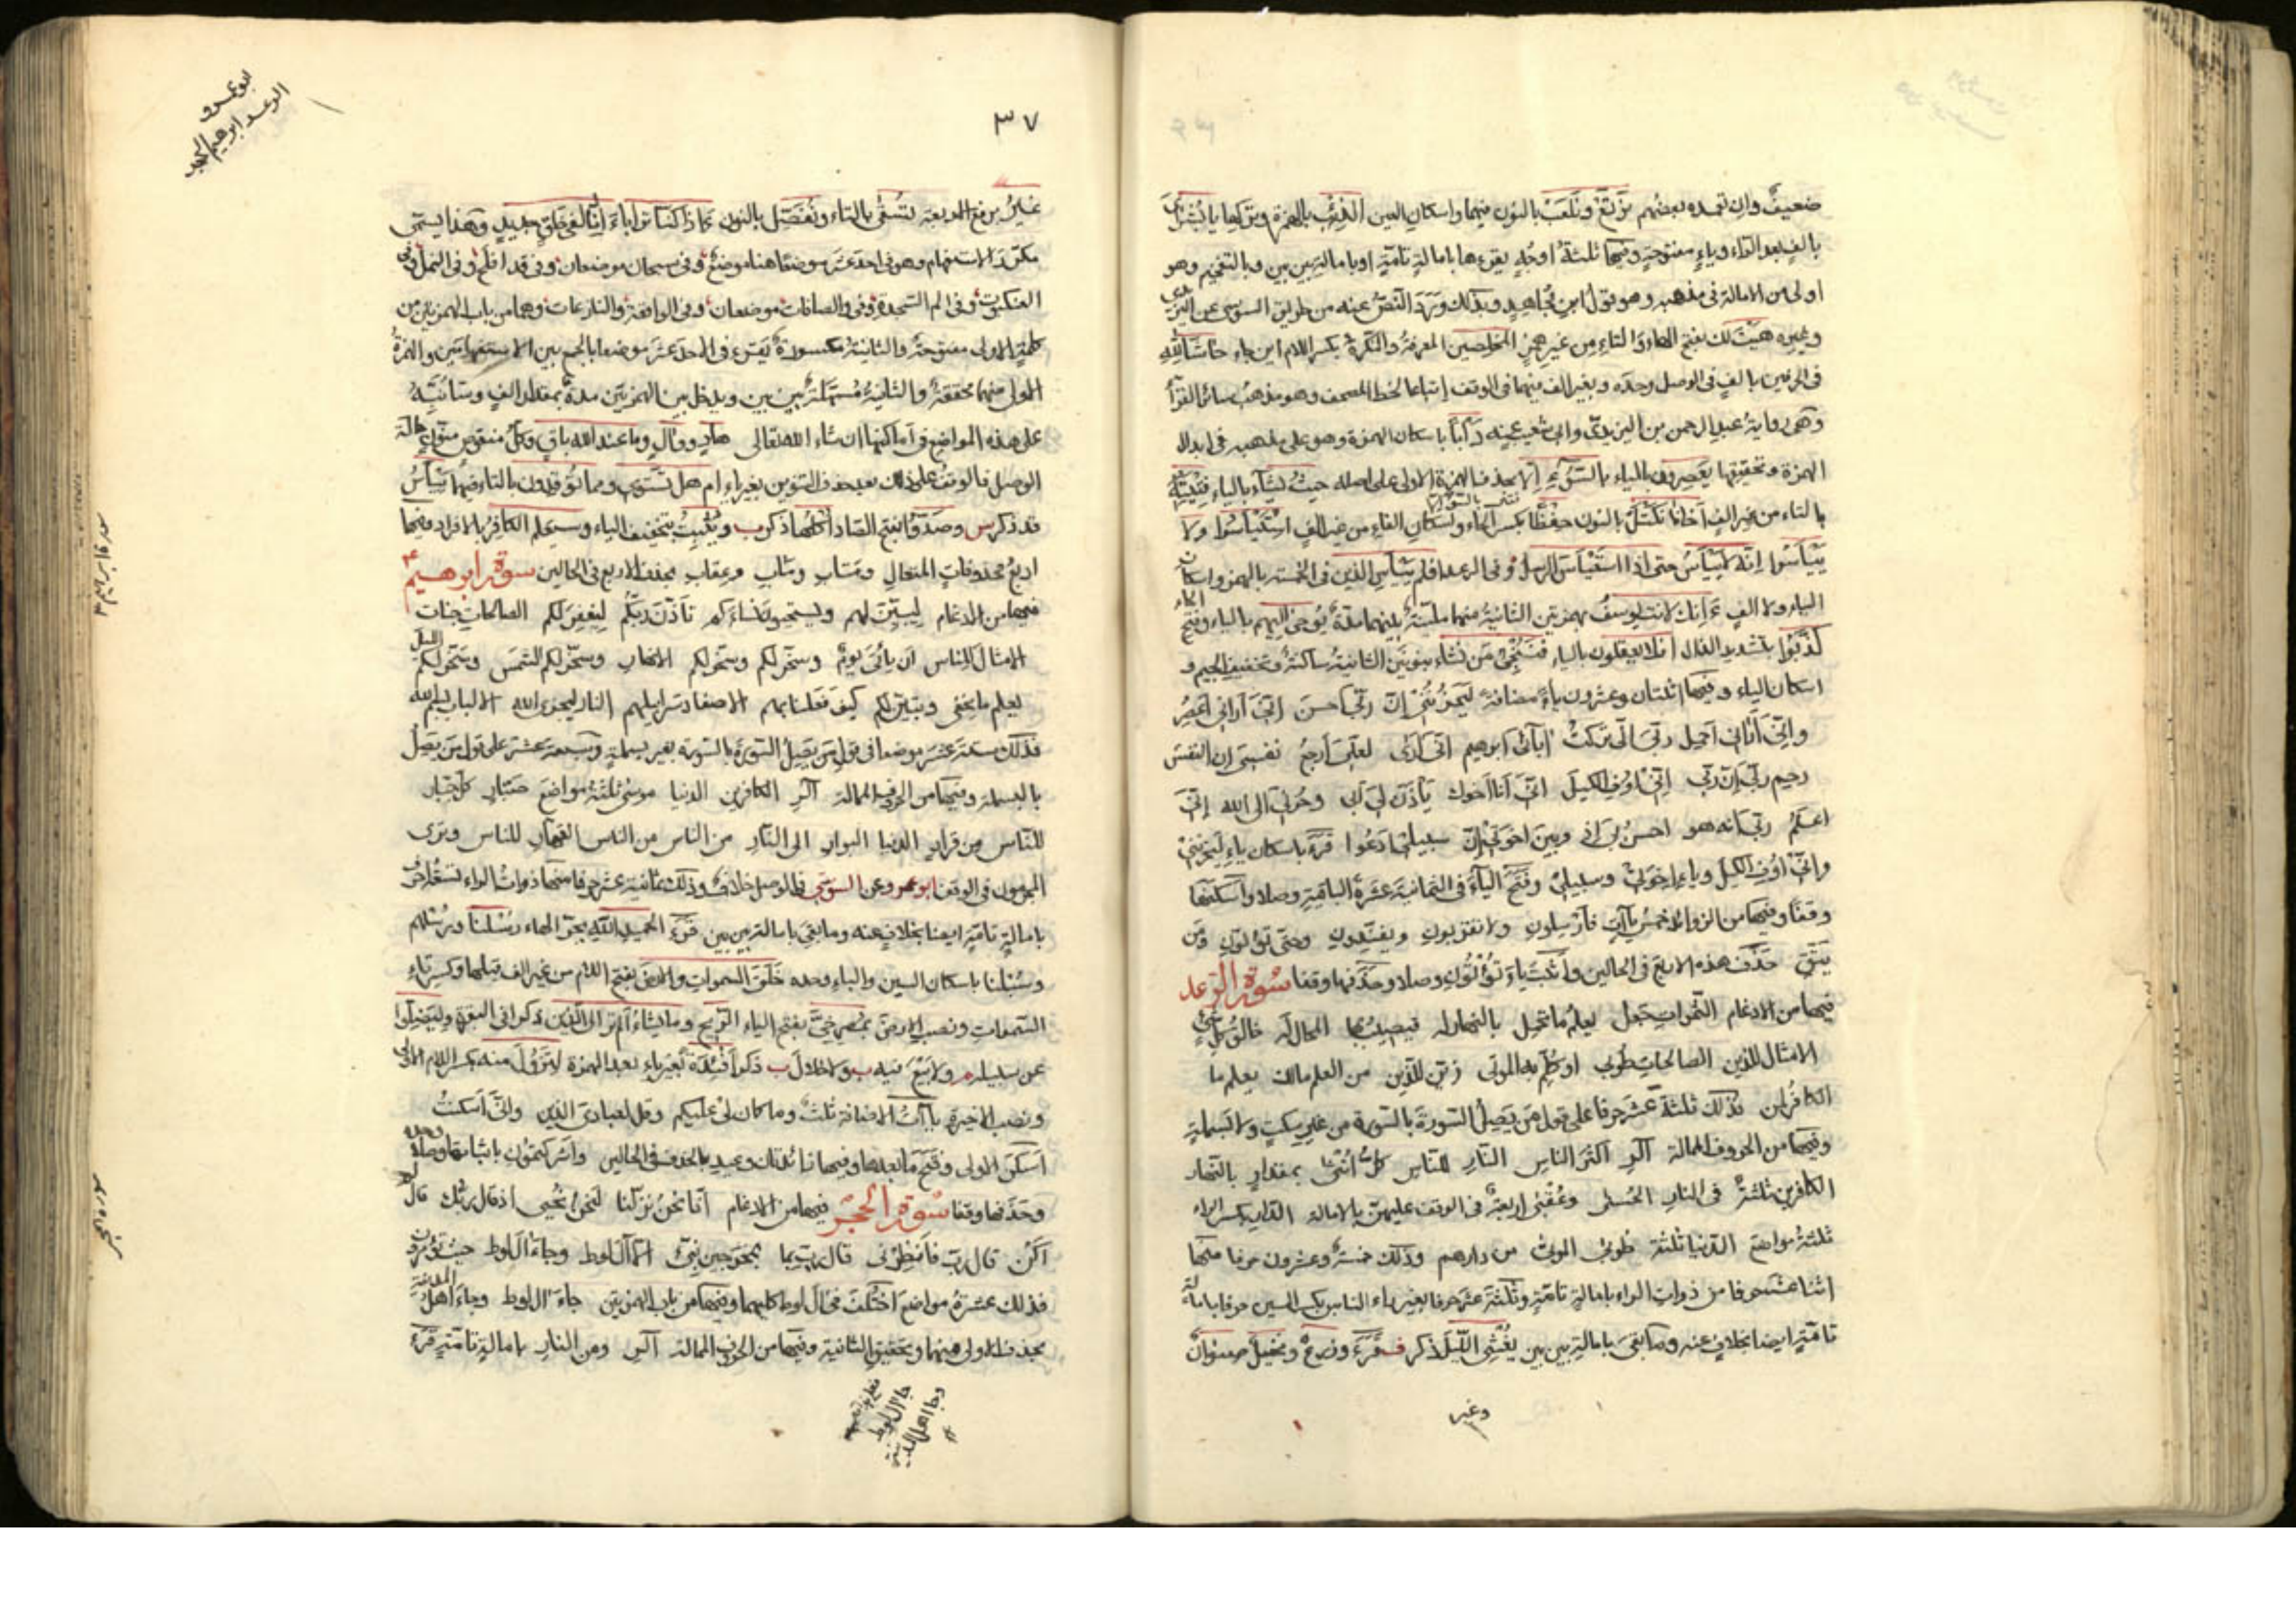 ضعيف وان تعمده بعضهم نرتع ونلعب بالنون فيهما واسكان العين الذئب بالهمزة وبتركها يا بشراي
بالف بعد الراء وياء مفتوحة وفيها ثلثة اوجه يقرءها بامالة تامة او بامالة بين بين وبالتفخيم وهو
اولى من الامالة في مذهبه وهو قول ابن مجاهد وبذلك ورد النص عنه من طريق السوسي عن اليزيدي
وغيره هيت لك بفتح الهاء والتاء من غير همز المخلصين المعرفة والنكرة بكسر اللام اين جاء حاشا لله
في الحرفين بالف في الوصل وحده وبغير الف فيهما في الوقف اتباعا لخط المصحف وهو مذهب سائر القراء
وهي رواية عبد الرحمن بن اليزيدي وابي شعيب عنه دأبا باسكان الهمزة وهو على مذهبه في ابدال
الهمزة وتحقيقها يعصرون بالياء بالسوء الا بحذف الهمزة الاولى على اصله حيث يشاء بالياء لفتيته
بالتاء من غير الف اخانا نكتل بالنون حفظا بكسر الحاء واسكان الفاء من غير الف استيأسوا ولا
ييأسوا انه لا ييأس حتى اذا استيأس الرسل وفي الرعد افلم ييأس الذين في الخمسة بالهمز واسكان
الياء ولا الف ءانك لانت يوسف بهمزتين الثانية منهما ملينة بينهما مدة يوحى اليهم بالياء وفتح الحاء
كذبوا بتشديد الذال افلا يعقلون بالياء فننجي من نشاء بنونين الثانية ساكنة وتخفيف الجيم و
اسكان الياء وفيها اثنتان وعشرون ياء مضافة ليحزنني ان ربي احسن اني اراني اعصر
واني اراني احمل ربي اني تركت اباءي ابرهيم اني ارى لعلي ارجع نفسي ان النفس
رحيم ربي ان ربي اني اوف الكيل اني انا اخوك يأذن لي ابي وحزني الى الله اني
اعلم ربي انه هو احسن بي اذ وبين اخوتي ان سبيلي ادعوا قرء باسكان ياء ليحزنني
واني اوف الكيل وياء اخوتي وسبيلي وفتح الياء في الثمانية عشرة الباقية وصلا واسكنها
وقفا وفيها من الزوائد خمس يآت فارسلون ولا تقربون وتفندون وحتى تؤتون ومن
يتق حذف هذه الاربع في الحالين واثبت ياء تؤتون وصلا وحذفها وقفا سورة الرعد
فيها من الادغام الثمرات جعل يعلم ما تحمل بالنهار له فيصيب بها المحال له خالق كل شيء
الامثال للذين الصالحات طوبى او كلم به الموتى زين للذين من العلم مالك يعلم ما
الكافر لمن فذلك ثلثة عشر حرفا على قول من يصل السورة بالسورة من غير سكت ولا بسملة
وفيها من الحروف الممالة آلر اكثر الناس النار للناس كل انثى بمقدار بالنهار
الكافرين ثلثة في النار الحسنى وعقبى اربعة في الوقف عليهن بالامالة الدار بكسر الراء
ثلثة مواضع الدنيا ثلثة طوبى الموتى من دارهم وذلك خمسة وعشرون حرفا منها
اثنا عشر حرفا من ذوات الراء بامالة تامة وثلثة عشر حرفا بغير راء الناس بكسر السين حرفا بامالة
تامة ايضا بخلاف عنه وما بقي بامالة بين بين يغشى الليل ذكر قرء وزرع ونخيل صنوان
وغير
٣٧
ابو عمرو
الرعد ابرهيم الحجر
غير برفع الاربعة تسقى بالتاء ونفضل بالنون ءاذا كنا ترابا ءانا لفي خلق جديد وهذا يسمى
مكرر الاستفهام وهو في احد عشر موضعا هنا موضع وفي سبحان موضعان وفي قد افلح وفي النمل وفي
العنكبوت وفي الم السجدة وفي والصافات موضعان وفي الواقعة والنازعات وهما من باب الهمزتين من
كلمة الاولى مفتوحة والثانية مكسورة يقرء في الاحد عشر موضعا بالجمع بين الاستفهامين والهمزة
الاولى منهما محققة والثانية مسهلة بين بين ويدخل بين الهمزتين مدة بمقدار الف وسأنبه
على هذه المواضع في اماكنها ان شاء الله تعالى هاد ووال وما عند الله باق وكل منقوص منون حالة
الوصل فالوقف على ذلك بعد حذف التنوين بغير ياء ام هل تستوي ومما توقدون بالتاء فيهما ييأس
قد ذكر س وصدوا بفتح الصاد اكلها ذكر ب ويثبت بتخفيف الباء وسيعلم الكافر بالافراد فيها
اربع محذوفات المتعال ومتاب ومئاب وعقاب بحذف الاربع في الحالين سورة ابرهيم
فيها من الادغام ليبين لهم ويستحيون نساءكم تأذن ربكم ليغفر لكم الصالحات جنات
الامثال للناس ان يأتي يوم وسخر لكم وسخر لكم الانهار وسخر لكم الشمس وسخر لكم الليل
يعلم ما يخفى وتبين لكم كيف فعلنا بهم الاصفاد سرابيلهم النار ليجزى الله الالباب بسم الله
فذلك ستة عشر موضعا في قول من يصل السورة بالسورة بغير بسملة وسبعة عشر على قول من يصل
بالبسملة وفيها من الحروف الممالة آلر الكافرين الدنيا موسى ثلثة مواضع صبار كل جبار
للناس من قرار الدنيا البوار الى النار من الناس من الناس القهار للناس وترى
المجرمون في الوقف ابو عمرو وعن السوسي في الوصل خلاف وذلك ثمانية عشر حرفا منها ذوات الراء تسعة احرف
بامالة تامة ايضا بخلاف عنه وما بقي بامالة بين بين قرء الحميد الله بجر الهاء رسلنا ورسلهم
وسبلنا باسكان السين والباء وحده خلق السموات والارض بفتح اللام من غير الف قبلها وكسر تاء
السموات ونصب الارض بمصرخي بفتح الياء الريح وما يشاء الم تر الى الذين ذكرا في البقرة وليضلوا
عن سبيله ولا بيع فيه ولا خلال ب ذكر افئدة بغير ياء بعد الهمزة لتزول منه بكسر اللام الاولى
ونصب الاخيرة يآت الاضافة ثلث وما كان لي عليكم وقل لعبادي الذين واني اسكنت
اسكن الاولى وفتح ما بعدها وفيها زائدتان وعيد بالحذف في الحالين واشركتمون باثباتها وصلا
وحذفها وقفا سورة الحجر فيها من الادغام انا نحن نزلنا لنحن نحيي اذ قال ربك قال
اكن قال رب فانظرني قال رب بما بمخرجين نبئ الا آل لوط وجاء آل لوط حيث تؤمرون
فذلك عشرة مواضع اختلف في آل لوط كليهما وفيها من باب الهمزتين جاء آل لوط وجاء اهل المدينة
بحذف الاولى منهما وبتحقيق الثانية وفيها من الحروف الممالة آلر ومن النار بامالة تامة قرء
جا آل لوط
وجا اهل المدينة
سورة ابرهيم
سورة الحجر